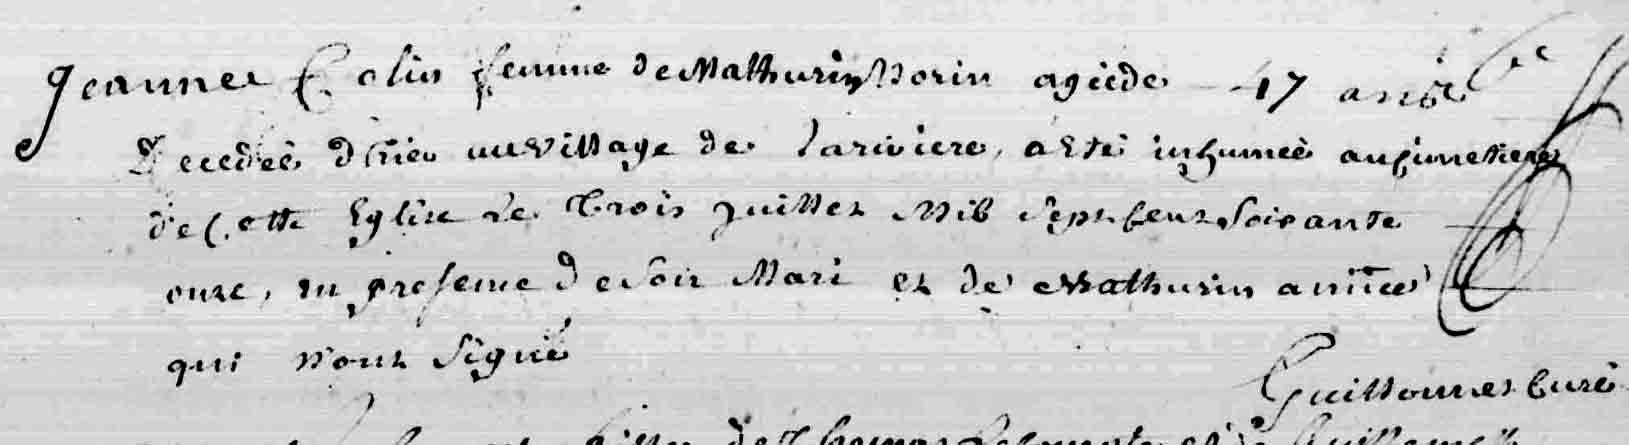 Jeanne Colin femme de Mathurin Morin agéede 47 ans
Decedeé d'hier au village de lariviere, a été inhumeé au cimetiere
de Cette Eglise Le Trois juillet Mil Sept Cent Soixante
onze, en presence de son Mari et de Mathurin
qui n'ont Signé
Guillonnet Curé
fille de Thomas et de